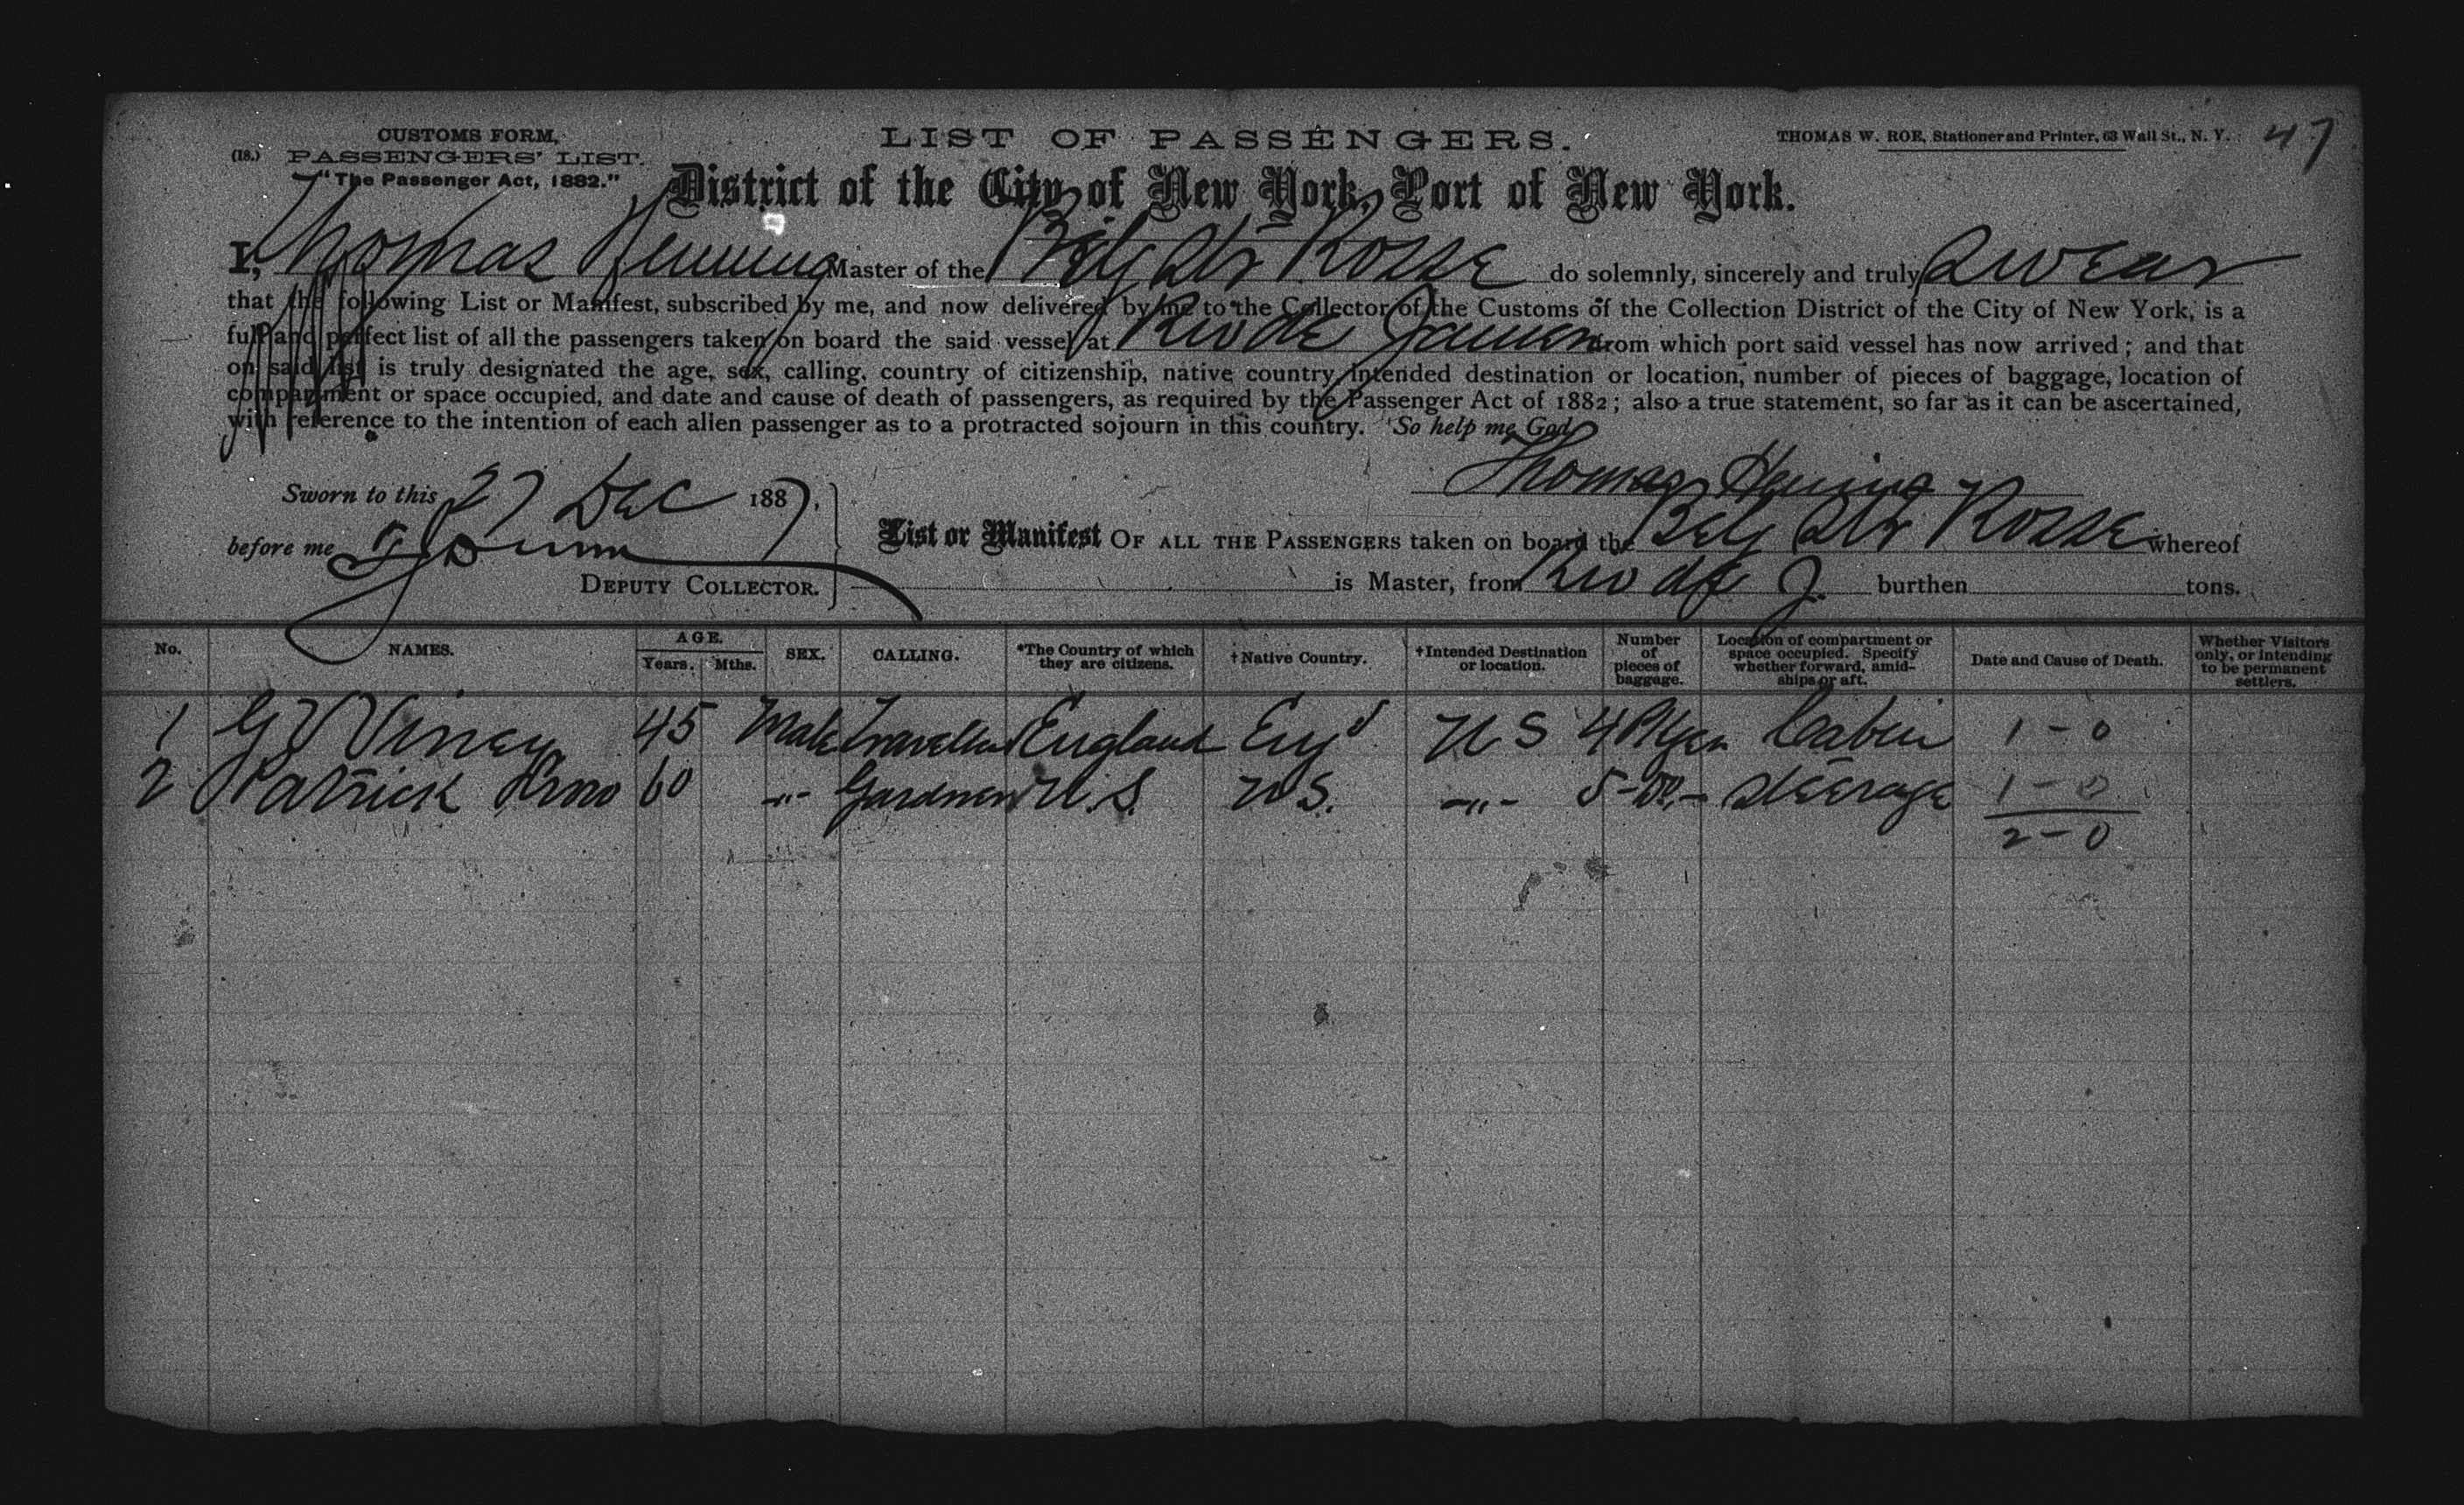 CUSTOMS FORM,
(18.) PASSENGERS' LIST.
"The Passenger Act, 1882."
LIST OF PASSENGERS.
THOMAS W. ROE, Stationer and Printer, 63 Wall St., N. Y.
47
District of the City of New York, Port of New York.
I, Thomas Master of the Belg Str Rosse do solemnly, sincerely and truly swear
that the following List or Manifest, subscribed by me, and now delivered by me to the Collector of the Customs of the Collection District of the City of New York, is a
full and perfect list of all the passengers taken on board the said vessel at Rio de from which port said vessel has now arrived; and that
on said list is truly designated the age, sex, calling, country of citizenship, native country, intended destination or location, number of pieces of baggage, location of
compartment or space occupied, and date and cause of death of passengers, as required by the Passenger Act of 1882; also a true statement, so far as it can be ascertained,
with reference to the intention of each alien passenger as to a protracted sojourn in this country. So help me God
Thomas
Sworn to this 27 Dec 1887,
before me
DEPUTY COLLECTOR.
List or Manifest OF ALL THE PASSENGERS taken on board the Belg Str Rosse whereof
is Master, from Rio de J. burthen tons.
No. NAMES. AGE. Years. Mths. SEX. CALLING. *The Country of which they are citizens. †Native Country. †Intended Destination or location. Number of pieces of baggage. Location of compartment or space occupied. Specify whether forward, amidships or aft. Date and Cause of Death. Whether Visitors only, or intending to be permanent settlers.
1 G V Viney 45 Male Traveller England Eng'd U S 4 Cabin 1 - 0
2 Patrick 60 -"- Gardner U.S. U S. -"- 5 -Do.- Steerage 1 - 0
2 - 0